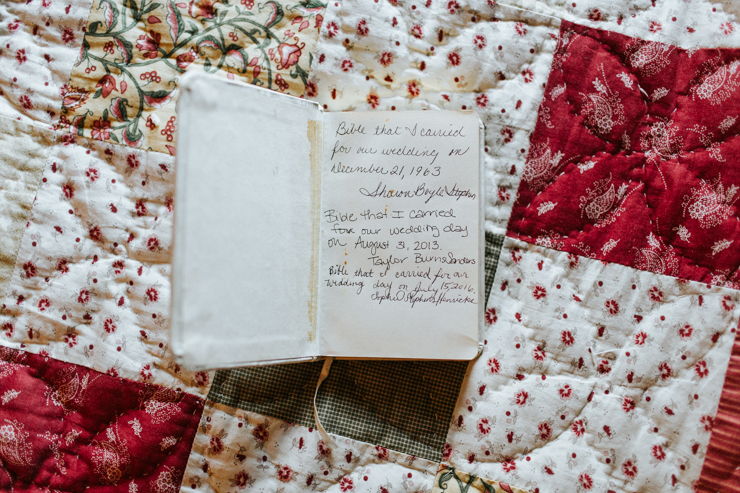 Bible that I carried
for our wedding on
December 21, 1963
Sharon Boyle Stephens
Bible that I carried
for our wedding day
on August 31, 2013.
Taylor Burns Sanders
Bible that I carried for our
wedding day on July 15, 2016.
Stephens